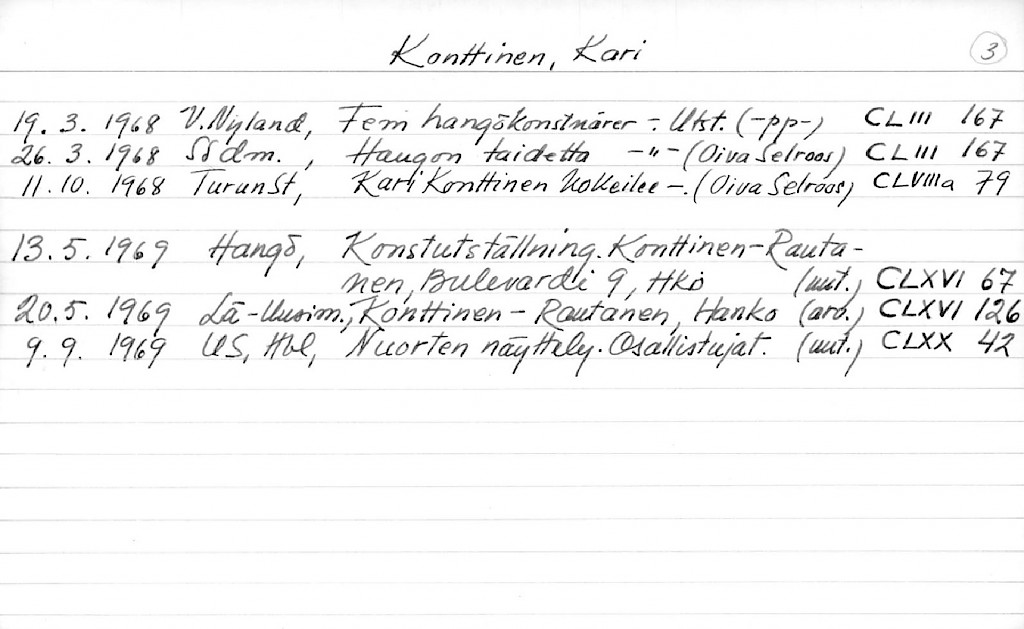 Konttinen, Kari 3
19. 3. 1968 V. Nyland, Fem hangökonstnärer - Utst. (-pp-) CLIII 167
26. 3. 1968 Ssdm., Hangon taidetta -"- (Oiva Selroos) CLIII 167
11. 10. 1968 TurunSt, Kari Konttinen kokeilee -. (Oiva Selroos) CLVIIIa 79
13. 5. 1969 Hangö, Konstutställning. Konttinen-Rauta-
nen, Bulevardi 9, Hko (uut.) CLXVI 67
20. 5. 1969 Lä-Uusim., Konttinen - Rautanen, Hanko (arv.) CLXVI 126
9. 9. 1969 US, Hbl, Nuorten näyttely. Osallistujat. (uut.) CLXX 42